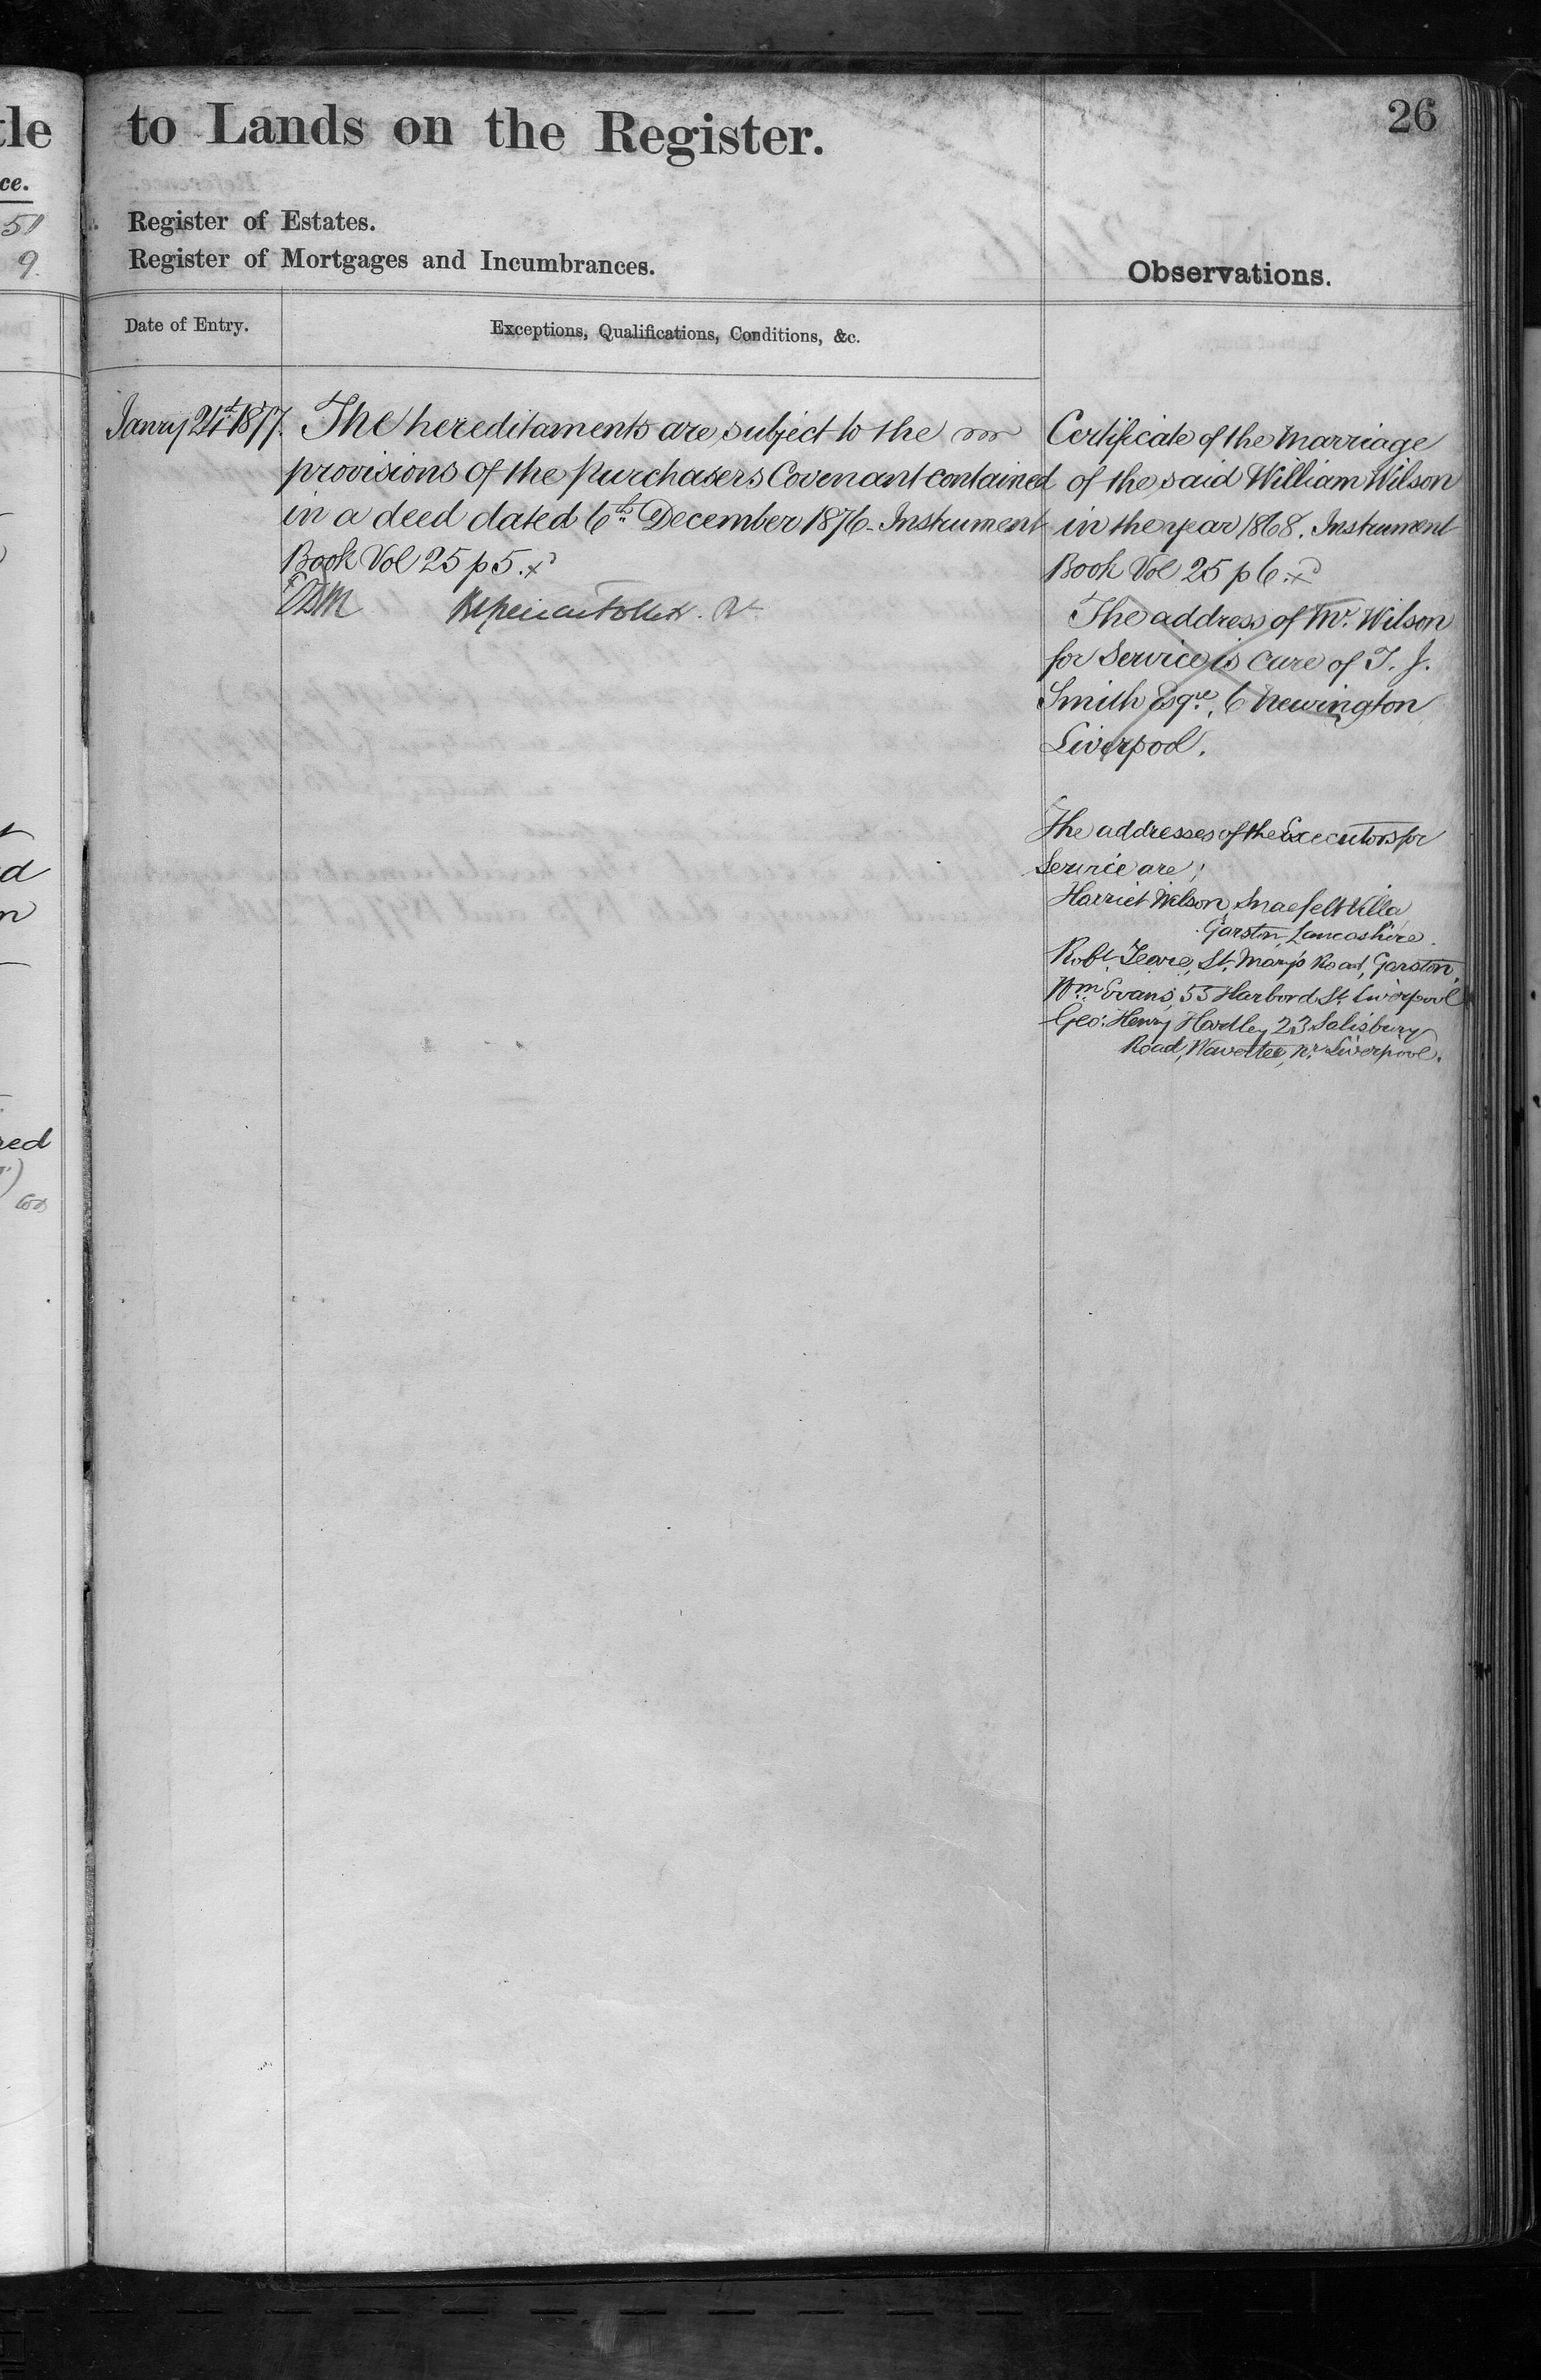 tle
to Lands on the Register.
26
ce.
51
9
Register of Estates.
Register of Mortgages and Incumbrances.
Observations.
Date of Entry.
Exceptions, Qualifications, Conditions, &c.
Janry 21st 1877.
The hereditaments are subject to the
provisions of the purchasers Covenant contained
in a deed dated 6th December 1876 - Instrument
Book Vol 25 p 5.
Certificate of the Marriage
of the said William Wilson
in the year 1868. Instrument
Book Vol 25 p 6.
The address of Mr. Wilson
for Service is care of T. J.
Smith Esqre, 6 Newington
Liverpool.
The addresses of the Executors for
Service are;
Harriet Wilson, Snaefelt Villa
Garston, Lancashire.
Robt. Teare, St. Mary's Road, Garston.
Wm. Evans, 53 Harbord St. Liverpool
Geo: Henry Hardley 23 Salisbury
Road, Wavertee, Nr. Liverpool.
d
n
red